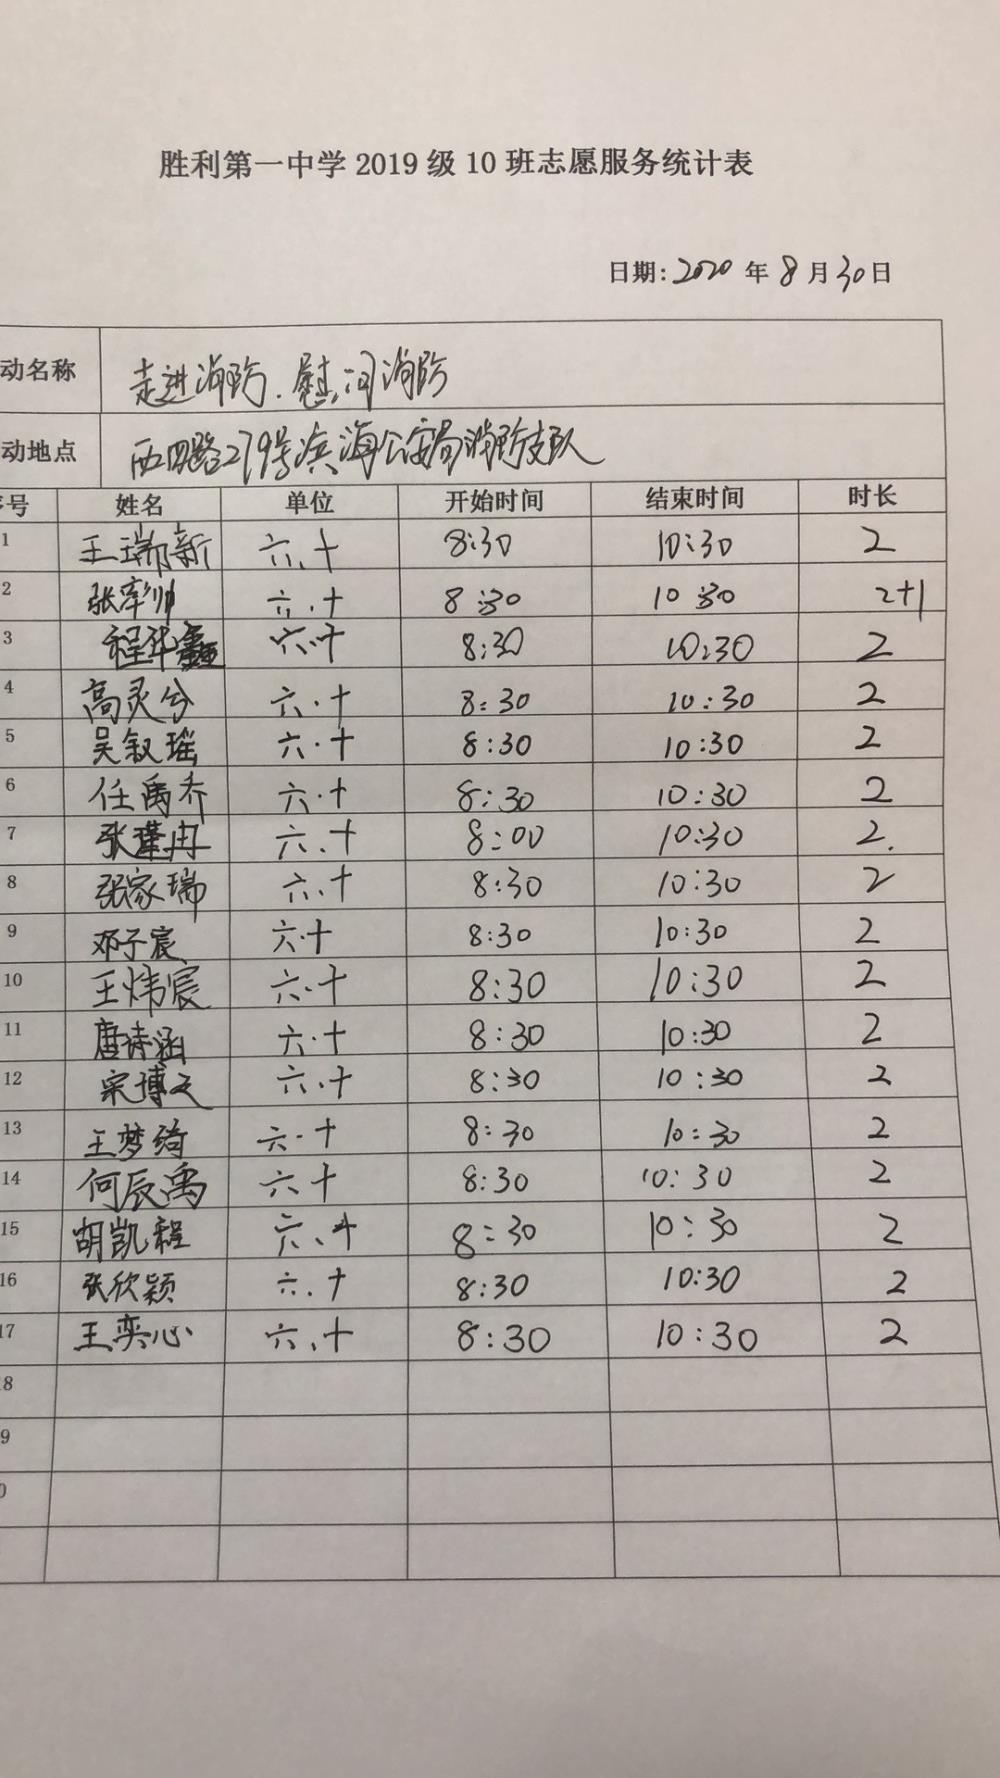 胜利第一中学 2019 级 10 班志愿服务统计表
日期: 2020 年 8 月 30 日
动名称 走进消防、慰问消防
动地点 西四路279号滨海公安局消防支队
序号 姓名 单位 开始时间 结束时间 时长
1 王瑞新 六、十 8:30 10:30 2
2 张率帅 六、十 8:30 10:30 2+1
3 程华鑫 六、十 8:30 10:30 2
4 高灵兮 六·十 8:30 10:30 2
5 吴叙瑶 六·十 8:30 10:30 2
6 任禹乔 六·十 8:30 10:30 2
7 张瑾冉 六、十 8:00 10:30 2.
8 张家瑞 六、十 8:30 10:30 2
9 邓子宸 六·十 8:30 10:30 2
10 王炜宸 六·十 8:30 10:30 2
11 唐诗涵 六·十 8:30 10:30 2
12 宋博文 六·十 8:30 10:30 2
13 王梦绮 六·十 8:30 10:30 2
14 何辰禹 六、十 8:30 10:30 2
15 胡凯程 六、十 8:30 10:30 2
16 张欣颖 六、十 8:30 10:30 2
17 王奕心 六、十 8:30 10:30 2
8
9
0